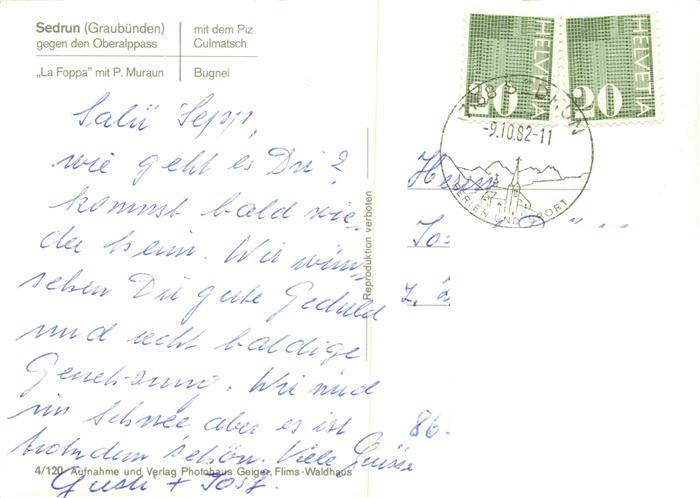 Sedrun (Graubünden)
gegen den Oberalppass
mit dem Piz
Culmatsch
„La Foppa" mit P. Muraun
Bugnei
Salü Sepp,
wie geht es Dir?
kommst bald wie-
der heim. Wir wün-
schen Dir gute Geduld
und recht baldige
Genesung. Wir sind
im Schnee aber es ist
trotzdem schön. Viele Grüsse
Gusti + Josy.
4/120 Aufnahme und Verlag Photohaus Geiger, Flims-Waldhaus
Reproduktion verboten
HELVETIA
20
HELVETIA
20
-9.10.82-11
FERIEN UND SPORT
Herrn
86-